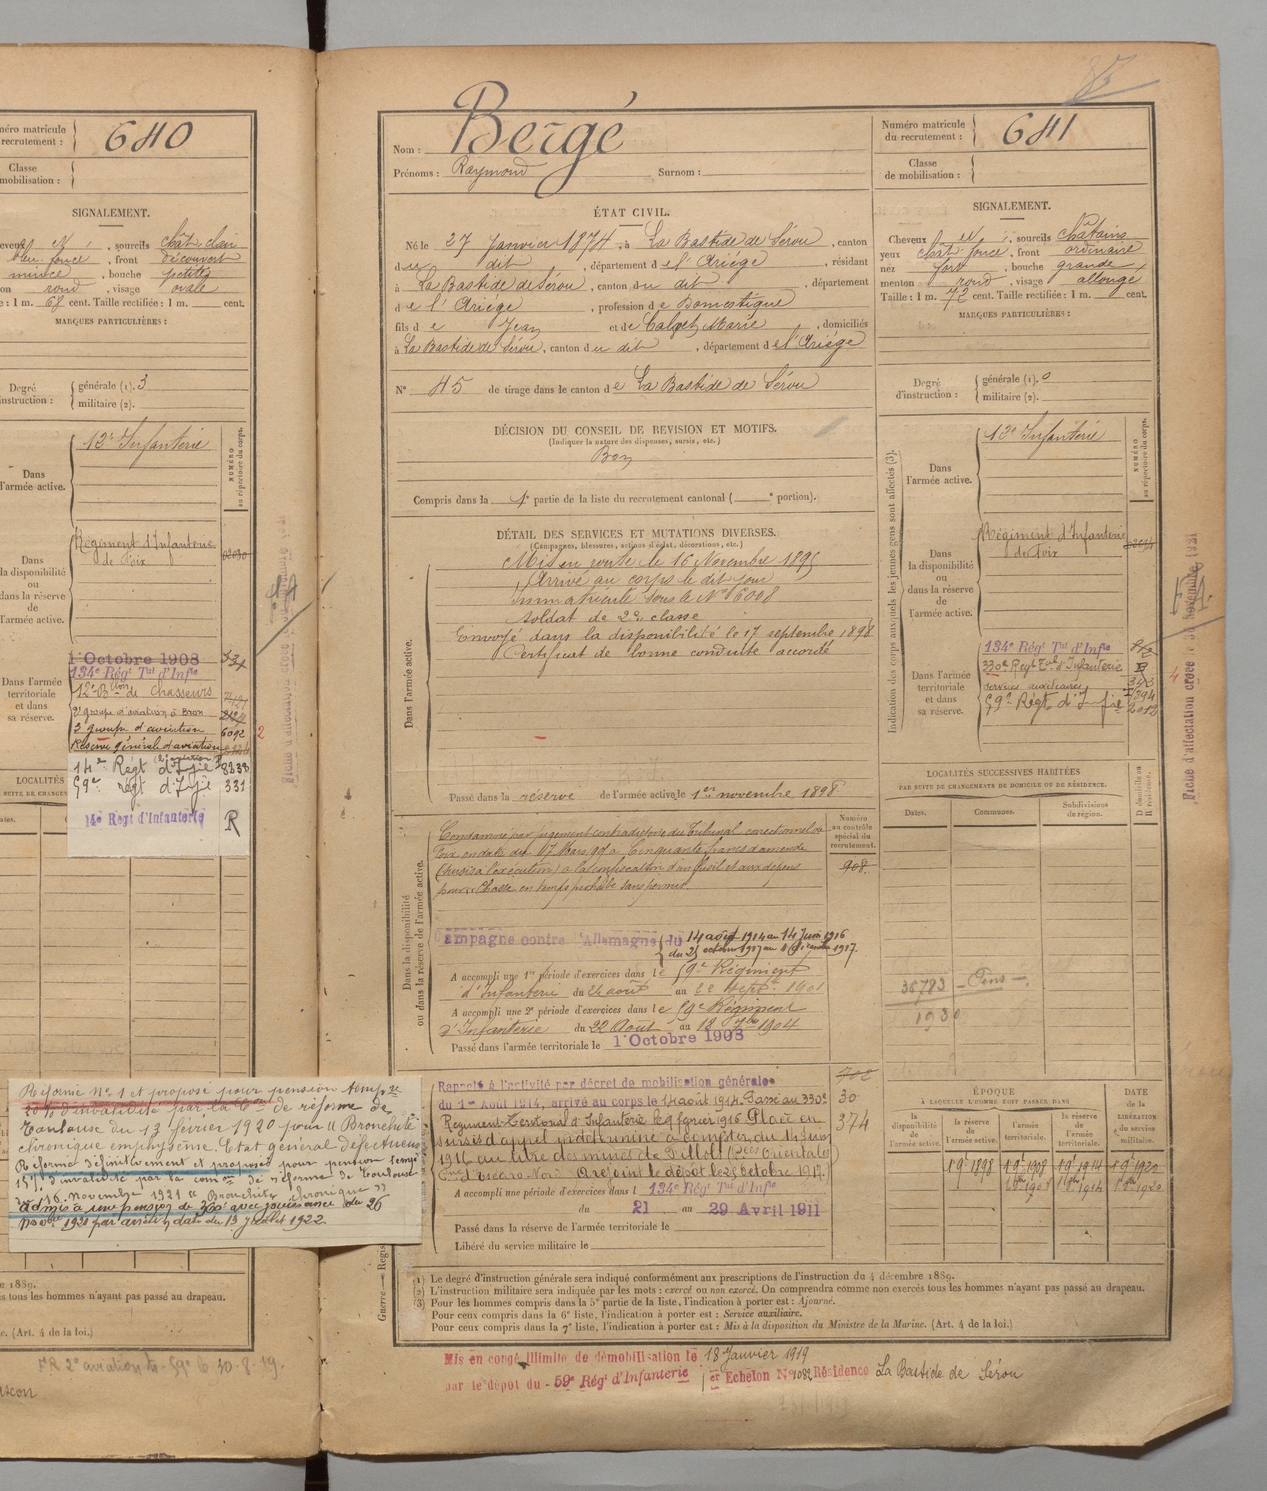 640
SIGNALEMENT.
MARQUES PARTICULIÈRES :
générale (1). 3
militaire (2).
12e Infanterie
Dans
l'armée active.
NUMÉRO
au répertoire du corps.
Régiment d'Infanterie
de Foix
Dans
la disponibilité
ou
dans la réserve
de
l'armée active.
1 Octobre 1908
134e Régt Tal d'Infie
12e Bton de Chasseurs
2e groupe d'aviation à Bron
3 groupe d'aviation 6092
Réserve générale d'aviation
14e Régt d'Infie 8238
59e régt d'Infie 331
14e Régt d'Infanterie R
Dans l'armée
territoriale
et dans
sa réserve.
Réformé No 1 et proposé pour pension temp.re
20% d'invalidité par la Con de réforme de
Toulouse du 13 février 1920 pour "Bronchite
chronique emphysème. Etat général défectueux
Réformé définitivement et proposé pour pension temp.
15% d'invalidité par la comon de réforme de Toulouse
du 16 novembre 1921 "Bronchite chronique"
admis à une pension de 360f avec jouissance du 26
nov.bre 1920 par arrêté en date du 13 juillet 1922
e 1889.
s tous les hommes n'ayant pas passé au drapeau.
e. (Art. 4 de la loi.)
Nom : Bergé
Prénoms : Raymond Surnom :
Numéro matricule
du recrutement : 641
Classe
de mobilisation :
ÉTAT CIVIL.
Né le 27 Janvier 1874, à La Bastide de Sérou, canton
du dit, département de l'Ariége, résidant
à La Bastide de Sérou, canton du dit, département
de l'Ariége, profession de Domestique
fils de Jean et de Calget Marie, domiciliés
à La Bastide de Sérou, canton du dit, département de l'Ariége
No 45 de tirage dans le canton de La Bastide de Sérou
SIGNALEMENT.
Cheveux et, sourcils châtains
yeux chât foncé, front ordinaire
nez fort, bouche grande
menton rond, visage allongé
Taille : 1 m. 72 cent. Taille rectifiée : 1 m. cent.
MARQUES PARTICULIÈRES :
Degré
d'instruction :
générale (1). 0
militaire (2).
DÉCISION DU CONSEIL DE REVISION ET MOTIFS.
(Indiquer la nature des dispenses, sursis, etc.)
Bon
Compris dans la 1e partie de la liste du recrutement cantonal ( e portion).
DÉTAIL DES SERVICES ET MUTATIONS DIVERSES.
(Campagnes, blessures, actions d'éclat, décorations, etc.)
Dans l'armée active.
Mis en route le 16 Novembre 1895
Arrivé au corps le dit jour
Immatriculé sous le No 6008
Soldat de 2e classe
Envoyé dans la disponibilité le 17 septembre 1898
Certificat de bonne conduite accordé
Passé dans la réserve de l'armée active le 1er novembre 1898
Indication des corps auxquels les jeunes gens sont affectés (3).
Dans
l'armée active.
12e Infanterie
NUMÉRO
au répertoire du corps.
Dans
la disponibilité
ou
dans la réserve
de
l'armée active.
Régiment d'Infanterie
de Foix
Dans l'armée
territoriale
et dans
sa réserve.
134e Régt Tal d'Infie
330e Régt Tal d'Infanterie
services auxiliaires
59e Régt d'Infie
Fiche d'affectation créée le
Dans la disponibilité
ou dans la réserve de l'armée active.
Condamné par jugement contradictoire du Tribunal correctionnel de
Foix en date du 17 Mars 99 à Cinquante francs d'amende
(Sursis à l'exécution) à la confiscation d'un fusil et aux dépens
pour Chasse en temps prohibé sans permis.
Numéro
au contrôle
spécial du
recrutement.
908
Campagne contre l'Allemagne du 14 août 1914 au 14 Juin 1916
du 25 octobre 1917 au
A accompli une 1re période d'exercices dans le 59e Régiment
d'Infanterie du 26 août au 22 Sept. 1901
A accompli une 2e période d'exercices dans le 59e Régiment
d'Infanterie du 22 Août au 18 7bre 1904
Passé dans l'armée territoriale le 1 Octobre 1908
LOCALITÉS SUCCESSIVES HABITÉES
PAR SUITE DE CHANGEMENTS DE DOMICILE OU DE RÉSIDENCE.
Dates. Communes. Subdivisions
de région. D domicile ou
R résidence.
36783 - Pens -
1930
Rappelé à l'activité par décret de mobilisation générale
du 1er Août 1914, arrivé au corps le 14 août 1914. Passé au 330e
Régiment Territorial d'Infanterie le 9 février 1916. Placé en
sursis d'appel indéterminé à compter du 14 Juin
1916 au titre des mines de Fillols (Pées Orientales)
A rejoint le dépôt le 25 Octobre 1917.
30
374
A accompli une période d'exercices dans l 134e Régt Tal d'Infie
du 21 au 29 Avril 1911
Passé dans la réserve de l'armée territoriale le
Libéré du service militaire le
ÉPOQUE
À LAQUELLE L'HOMME DOIT PASSER DANS
la
disponibilité
de
l'armée active.
la réserve
de
l'armée active.
l'armée
territoriale.
la réserve
de
l'armée
territoriale.
DATE
de la
LIBÉRATION
du service
militaire.
1 9bre 1898
(1) Le degré d'instruction générale sera indiqué conformément aux prescriptions de l'instruction du 4 décembre 1889.
(2) L'instruction militaire sera indiquée par les mots : exercé ou non exercé. On comprendra comme non exercés tous les hommes n'ayant pas passé au drapeau.
(3) Pour les hommes compris dans la 5e partie de la liste, l'indication à porter est : Ajourné.
Pour ceux compris dans la 6e liste, l'indication à porter est : Service auxiliaire.
Pour ceux compris dans la 7e liste, l'indication à porter est : Mis à la disposition du Ministre de la Marine. (Art. 4 de la loi.)
Mis en congé illimité de démobilisation le 18 Janvier 1919
par le dépôt du 59e Régt d'Infanterie 1er Echelon No 1082 Résidence La Bastide de Sérou